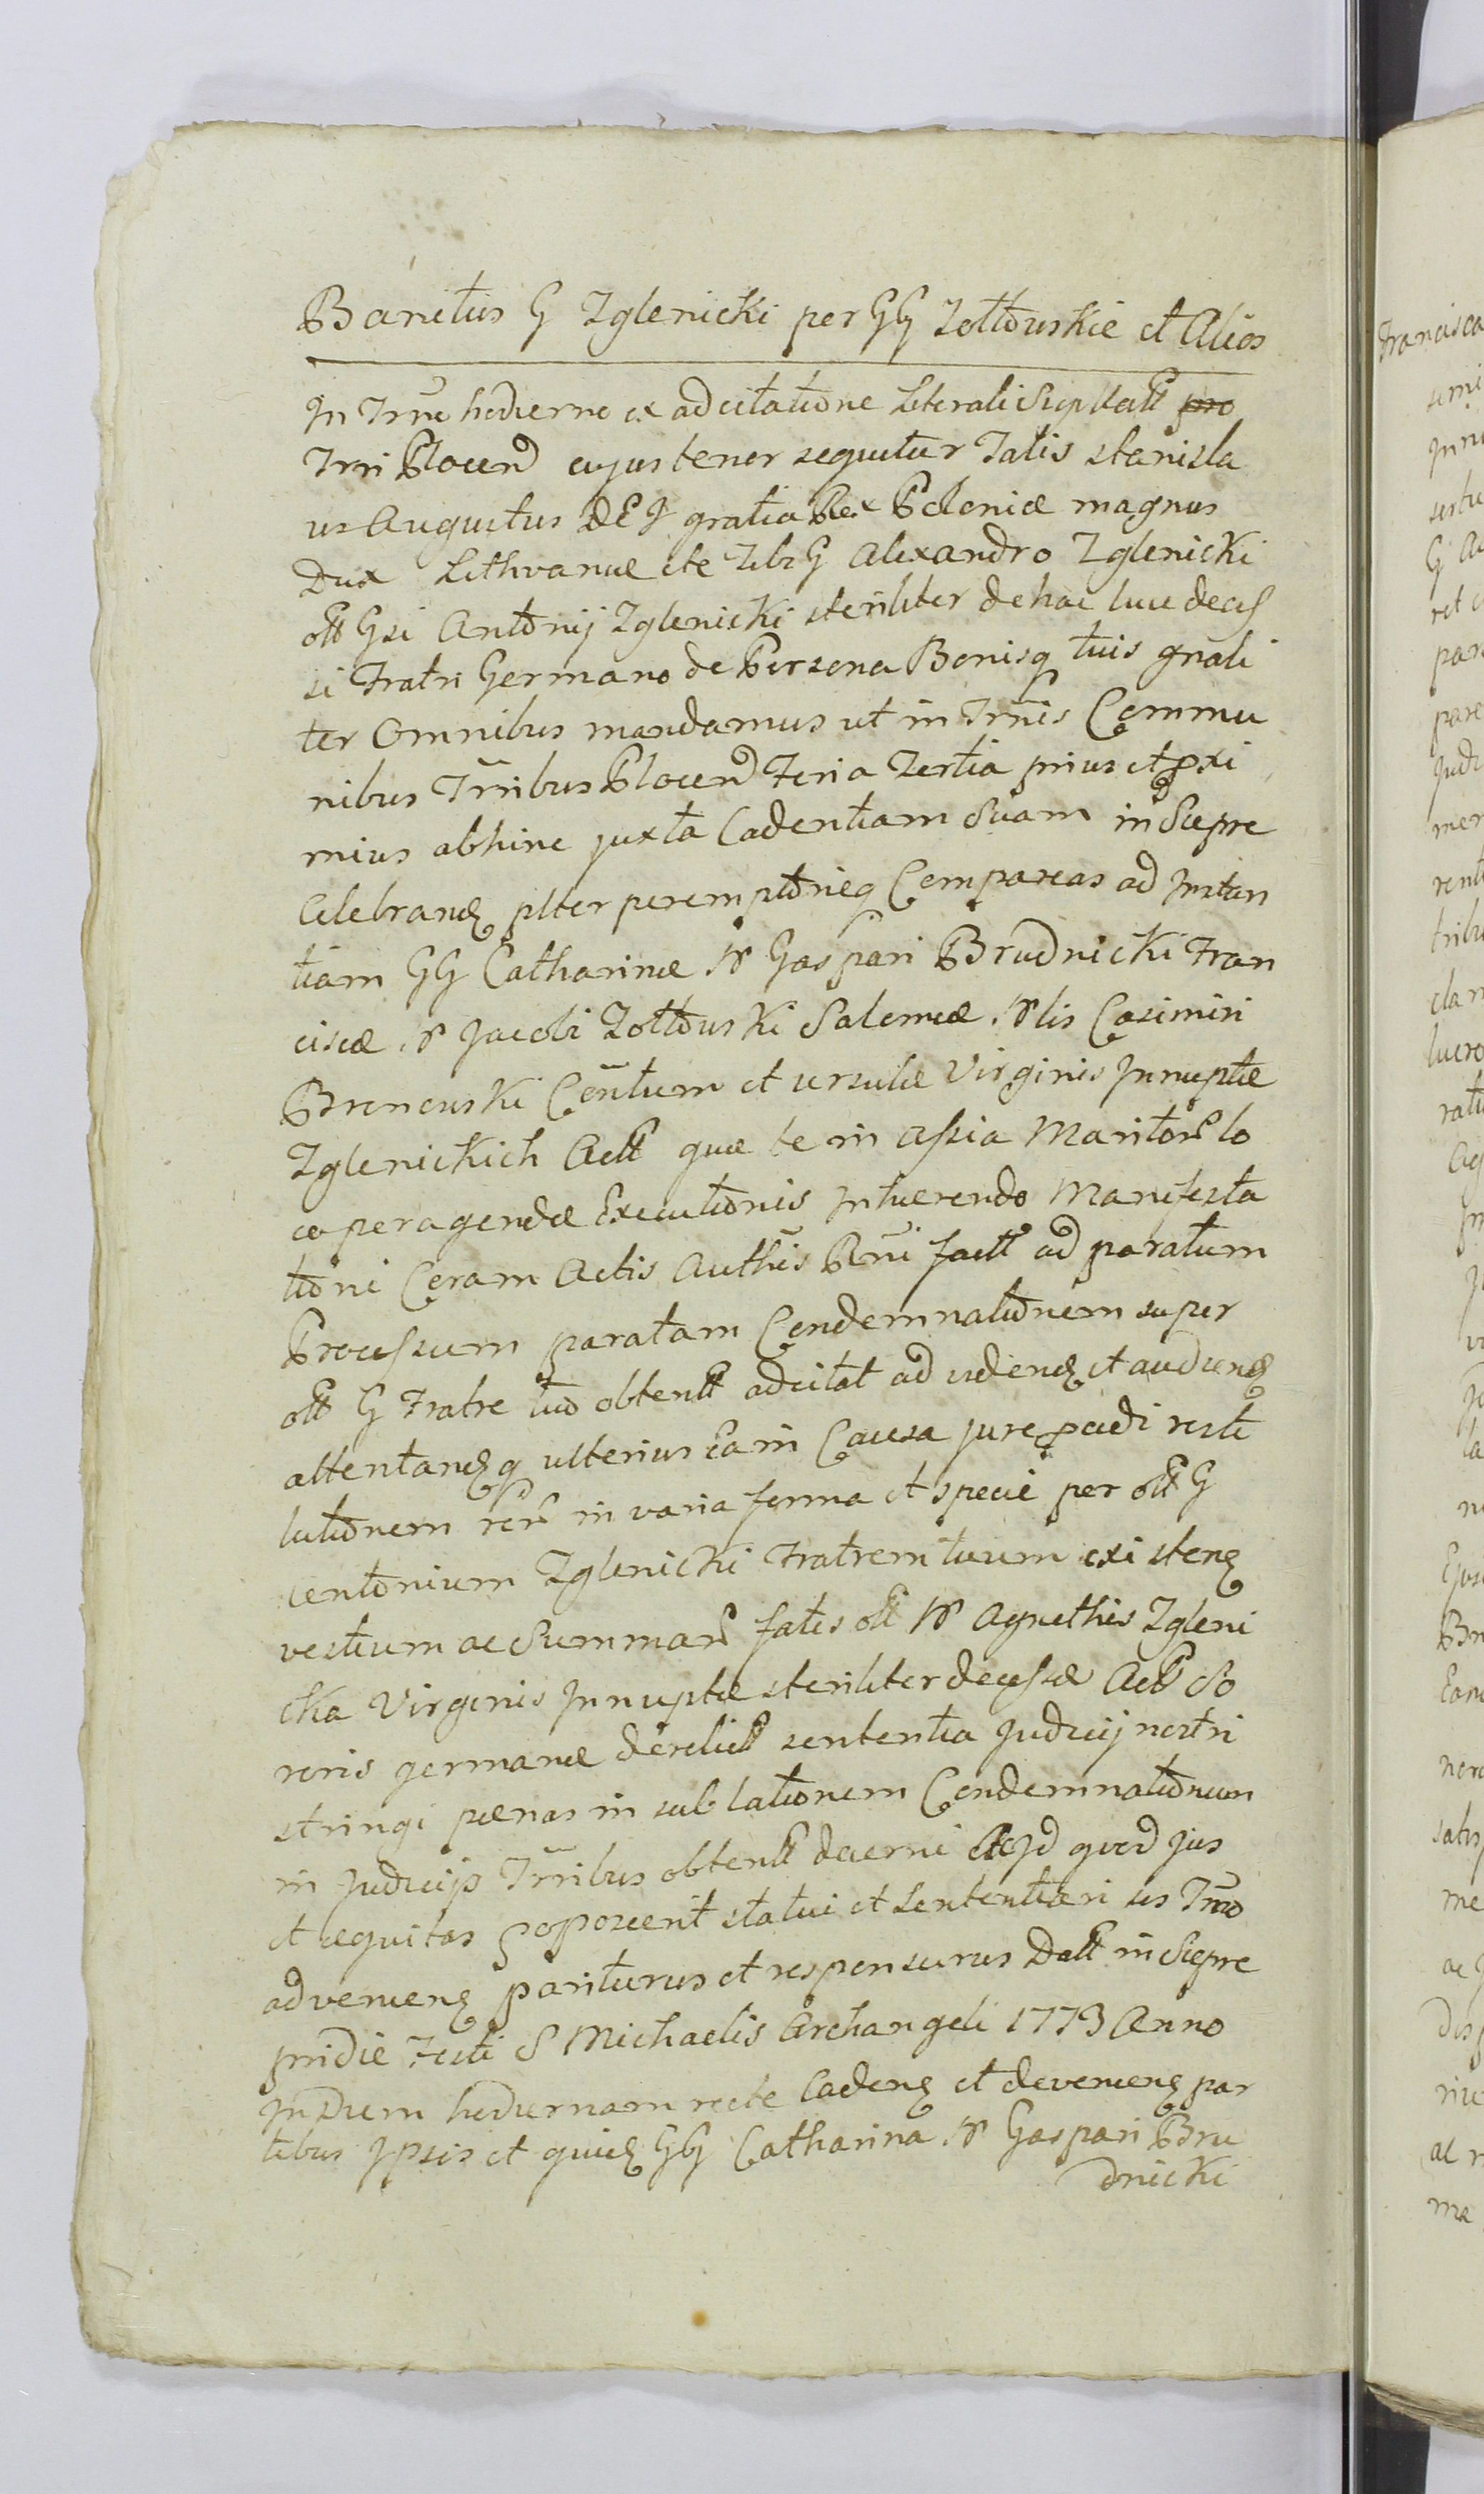 Banitus G Zglenicki per GG Zołtowskie et Alios
In Trno hodierno ex adcitatione Literali Siep Kall pro
Trri Plocen cujus tenor sequitur Talis stanisla
us Augustus DEI gratia Rex Poloniæ magnus
Dux Lithvaniæ etc Tibi G Alexandro Zglenicki
oll Gsi Antonij Zglenicki steriliter de hac luce deces
si Fratri Germano de Persona Bonisq tuis gnali
ter Omnibus mandamus ut in Trnis Commu
nibus Trribus Plocen Feria Tertia prius et pxi
mius abhinc juxta Cadentiam Suam in Siepre
Celebrand plter peremptorieq Compareas ad Instan
tiam GG Catharinæ Gaspari Brudnicki Fran
ciscæ Jacobi Zołtowski Salomeæ Casimiri
Bronowski Contum et ursulæ Virginis Innuptæ
Zglenickich Actt quæ te in assia Maritor lo
co peragendæ Executionis Inhærendo Manifesta
tioni Coram Actis Authis Rni factt ad paratum
Processum paratam Condemnationem super
oll G Fratre tuo obtentt adcitat ad vidend et audiend
attentandq ulterius Ea in Causa jure pcedi resti
tutionem rer in varia forma et specie per oll G
Antonium Zglenicki Fratrem tuum existen
vestium ac Summar fatis oll Agnethis Zgleni
cka Virginis Innuptæ steriliter decessæ Act So
roris germanæ derelict sententia Judicij nostri
stringi pænas in sublationem Condemnationum
in Judicijs Trribus obtentt decerni Ac Id quod jus
et æquitas poposcerit statui et Sententiari sis Trno
advenien pariturus et responsurus Datt in Siepre
pridie Festi S Michaelis Archangeli 1773 Anno
In Diem hodiernam recte Caden et devenien par
tibus Ipsis et quid GG Catharina Gaspari Bru
dnicki
Francisca